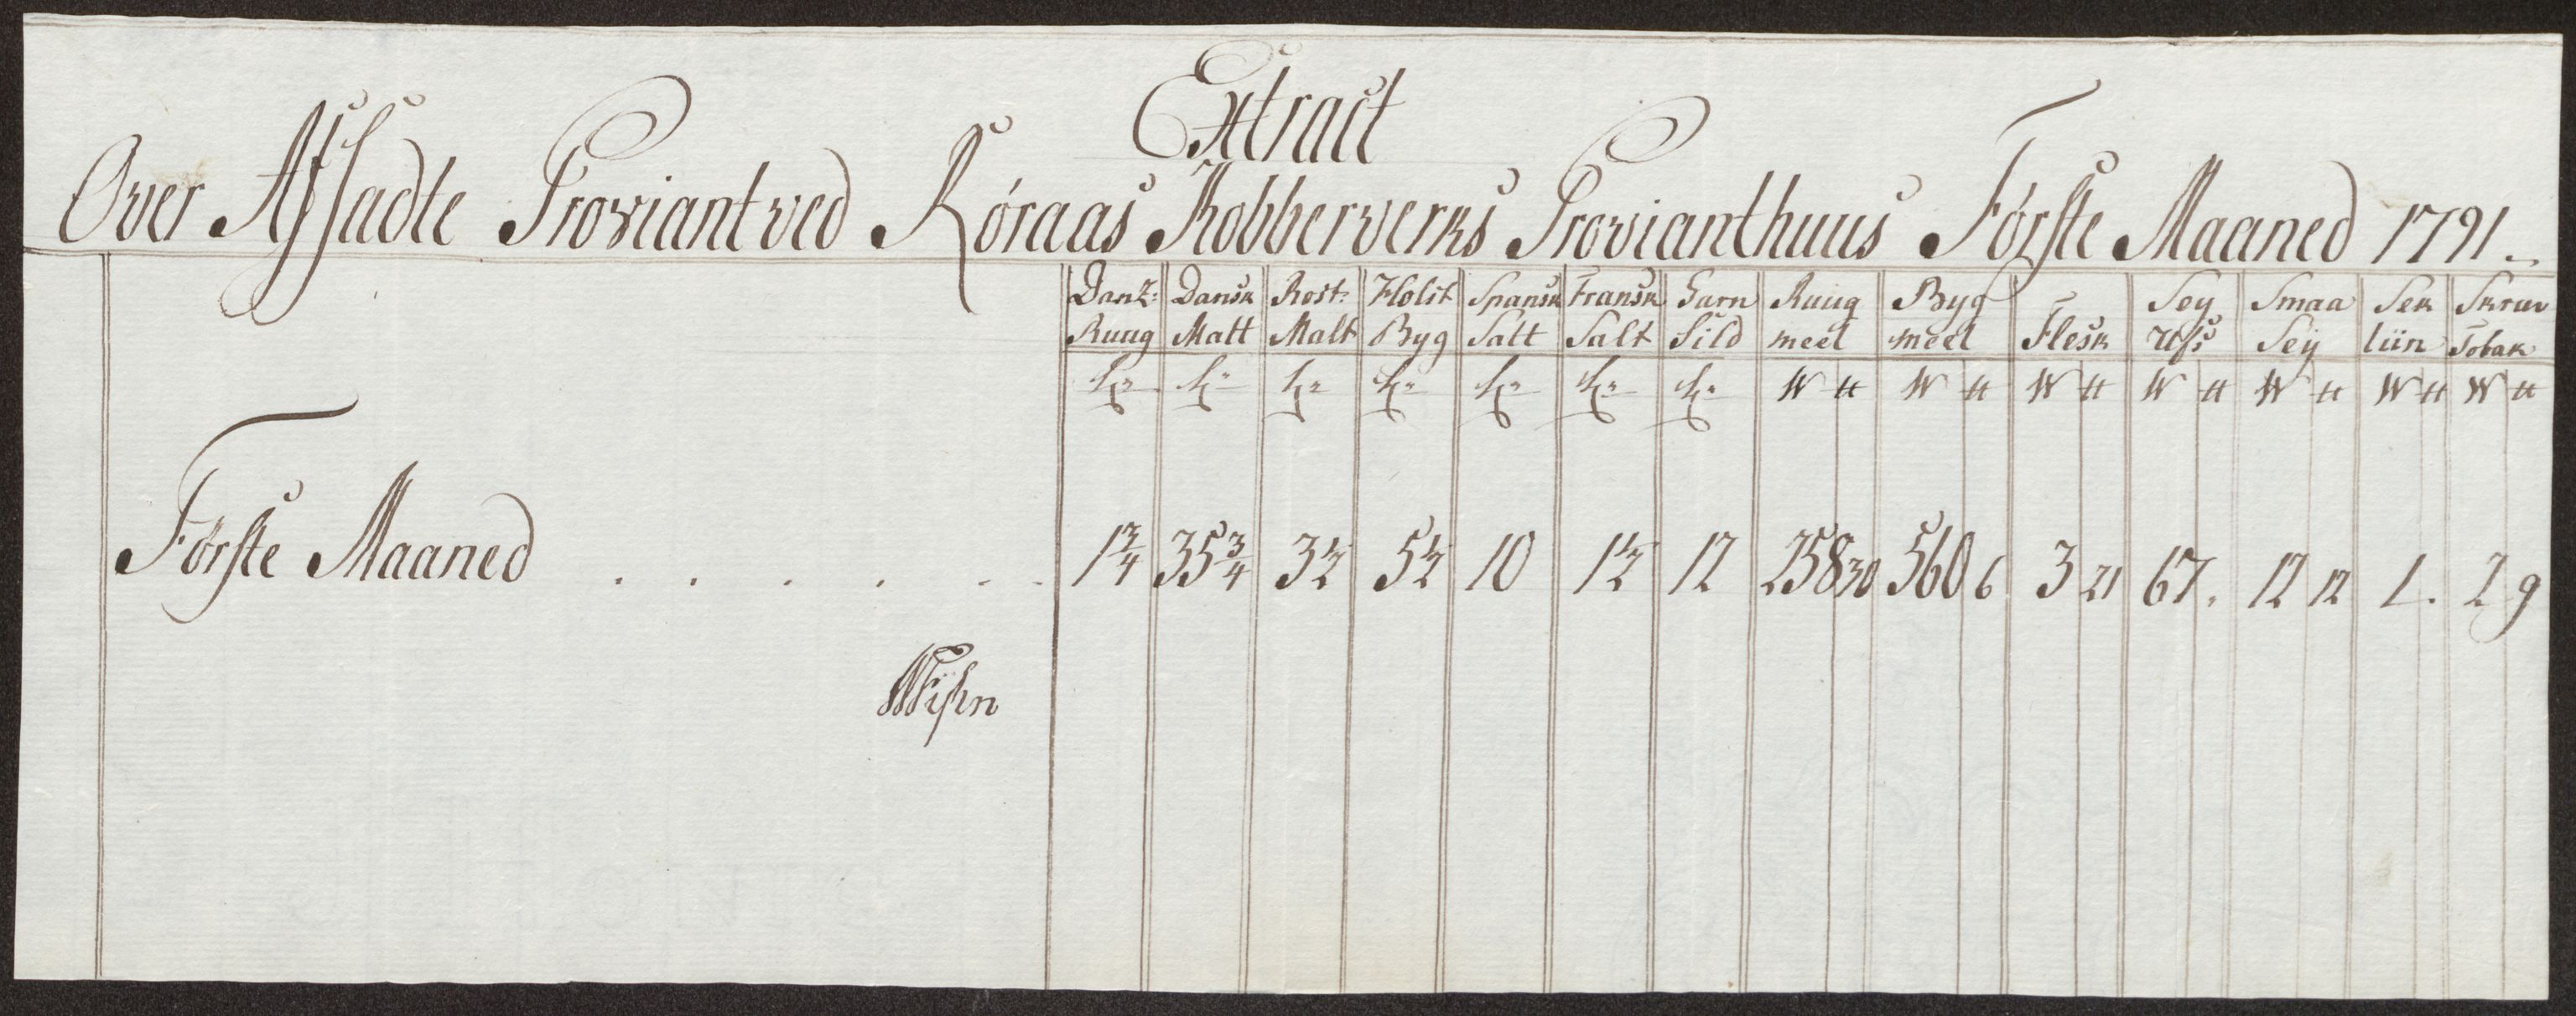 Extract
Over Afsadte Proviant ved Röraas Kobberverks Provianthuus Förſte Maaned 1791.
Danz: Ruug Dansk Malt Rost: Malt Holst Byg Spansk Salt Fransk Salt Garn Sild Ruug meel Byg meel Flesk Sey Ufs Smaa Sey Sek liin Skrur Tobak
W ℔ W ℔ W ℔ W ℔ W ℔ W ℔ W ℔
Förſte Maaned . . . . . . 1 3/4 35 3/4 3 1/2 5 1/2 10 1 1/2 12 258 30 560 6 3 21 67 . 12 12 1 . 2 9